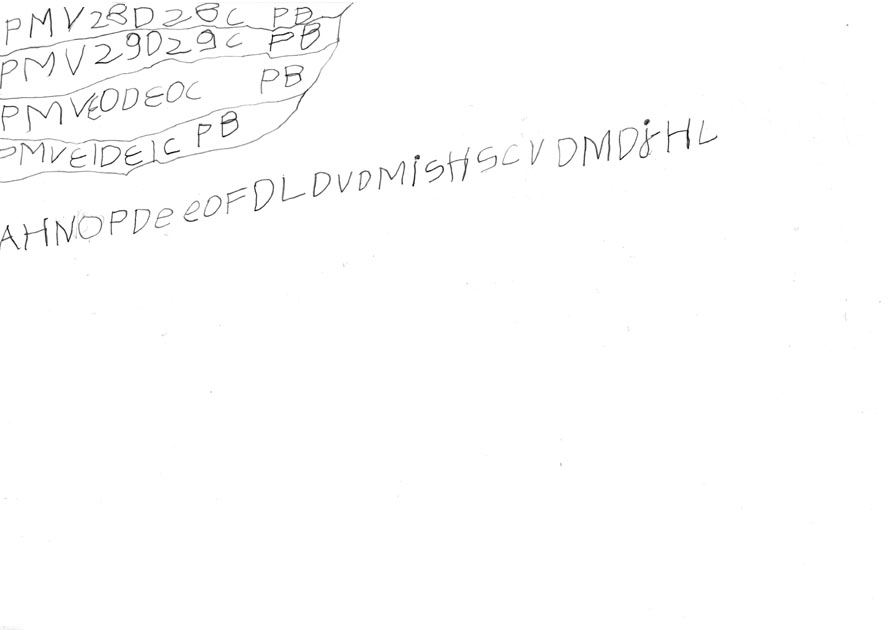 PMV28D28C PB
PMV29D29C PB
PMVEODEOC PB
PMVEIDEIC PB
AHNOPDeeOFDLDVDMiSHSCVDMDjHL